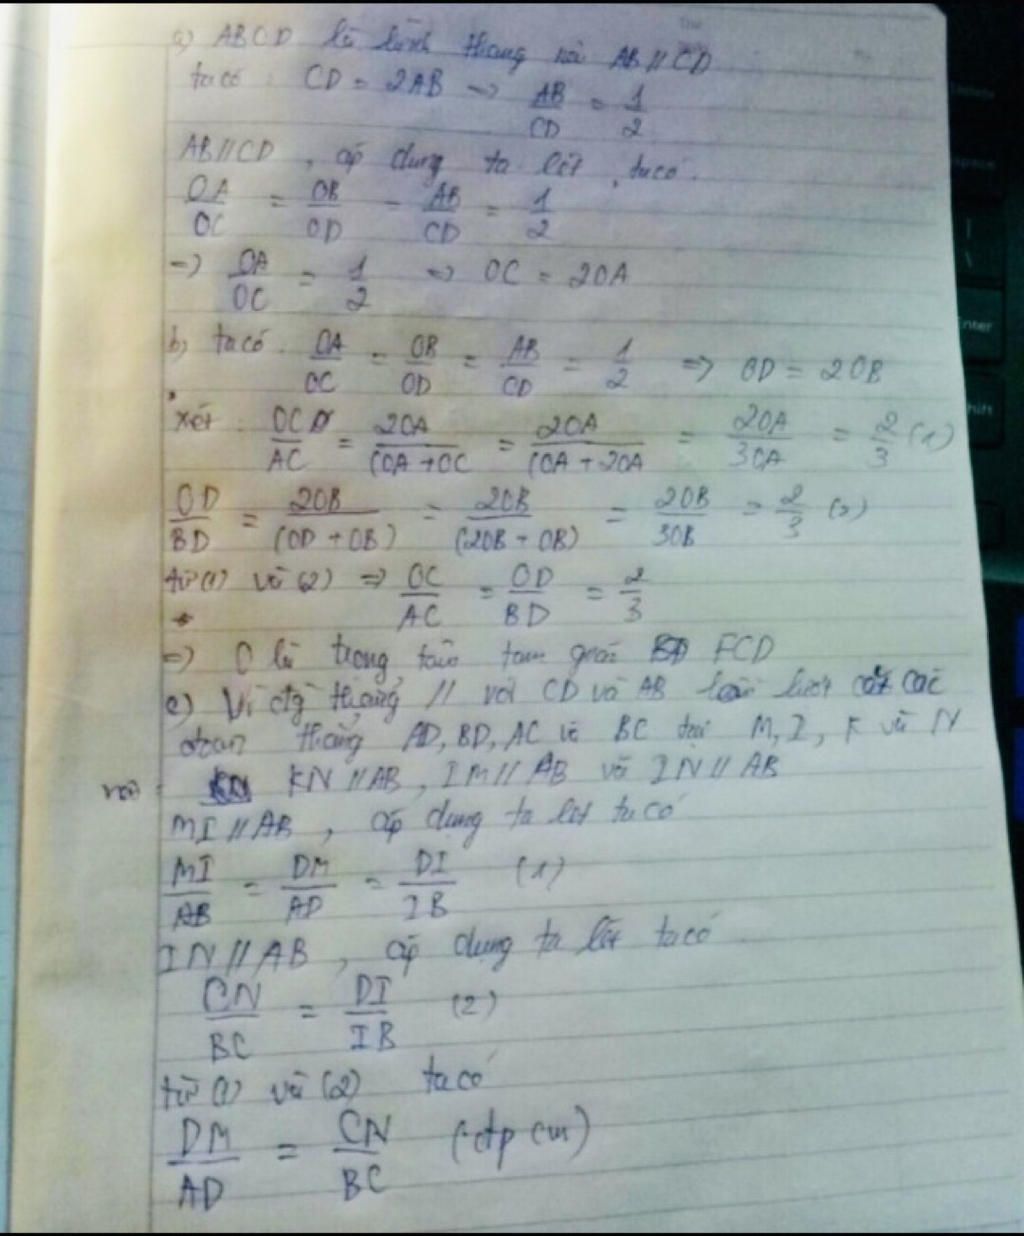 a) ABCD là hình thang với AB//CD
ta có : CD = 2AB => AB/CD = 1/2
AB//CD , áp dụng ta lét , ta có .
OA/OC = OB/OD = AB/CD = 1/2
=> OA/OC = 1/2 => OC = 2OA
b) ta có . OA/OC = OB/OD = AB/CD = 1/2 => OD = 2OB
xét : OC/AC = 2OA/(OA + OC = 2OA/(OA + 2OA = 2OA/3OA = 2/3 (1)
OD/BD = 2OB/(OD + OB) = 2OB/(2OB + OB) = 2OB/3OB = 2/3 (2)
từ (1) và (2) => OC/AC = OD/BD = 2/3
=> O là trọng tâm tam giác FCD
c) Vì đg thẳng // với CD và AB lần lượt cắt các
đoan thẳng AD, BD, AC và BC tại M, I, K và N
nên KN // AB , IM // AB và IN // AB
MI // AB , áp dụng ta lét ta có
MI/AB = DM/AD = DI/IB (1)
IN // AB , áp dụng ta lét ta có
CN/BC = DI/IB (2)
từ (1) và (2) ta có
DM/AD = CN/BC (đp cm)